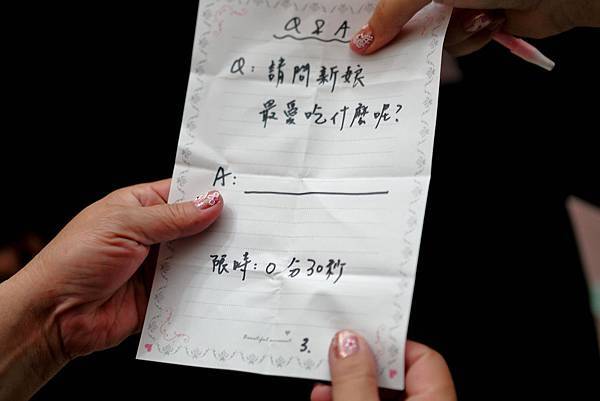 Q & A
Q: 請問新娘
最愛吃什麼呢?
A:
限時: 0 分30秒
Beautiful moment
3.